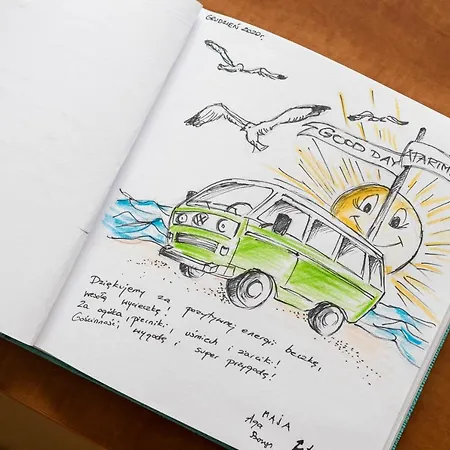 GRUDZIEŃ 2020r.
GOOD DAY APARTM
VW
Dziękujemy za pozytywnej energii beczkę,
wesołą wycieczkę!
Za ogórka i pierniki! uśmiech i żarciki!
Gościnność, wygodę i super przygodę!
MAJA
Aga
Borys